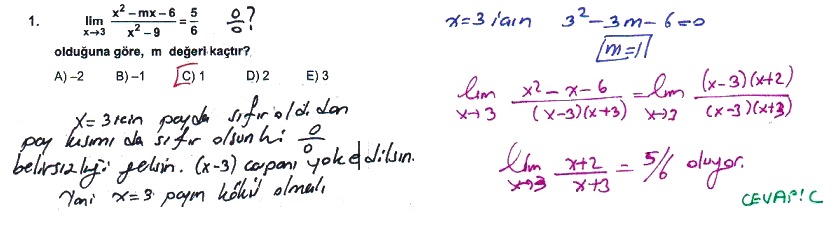 1. lim x→3 x² – mx – 6 / x² – 9 = 5/6 0/0 ?
olduğuna göre, m değeri kaçtır?
A) –2 B) –1 C) 1 D) 2 E) 3
x=3 için payda sıfır oldından
pay kısmı da sıfır olsun ki 0/0
belirsizliği gelsin. (x-3) çapanı yok edilsin.
Yani x=3 payın kökü olmalı
x=3 için 3² – 3m – 6 = 0
m=1
lim x→3 x² – x – 6 / (x-3)(x+3) = lim x→3 (x-3)(x+2) / (x-3)(x+3)
lim x→3 x+2 / x+3 = 5/6 oluyor.
CEVAP: C